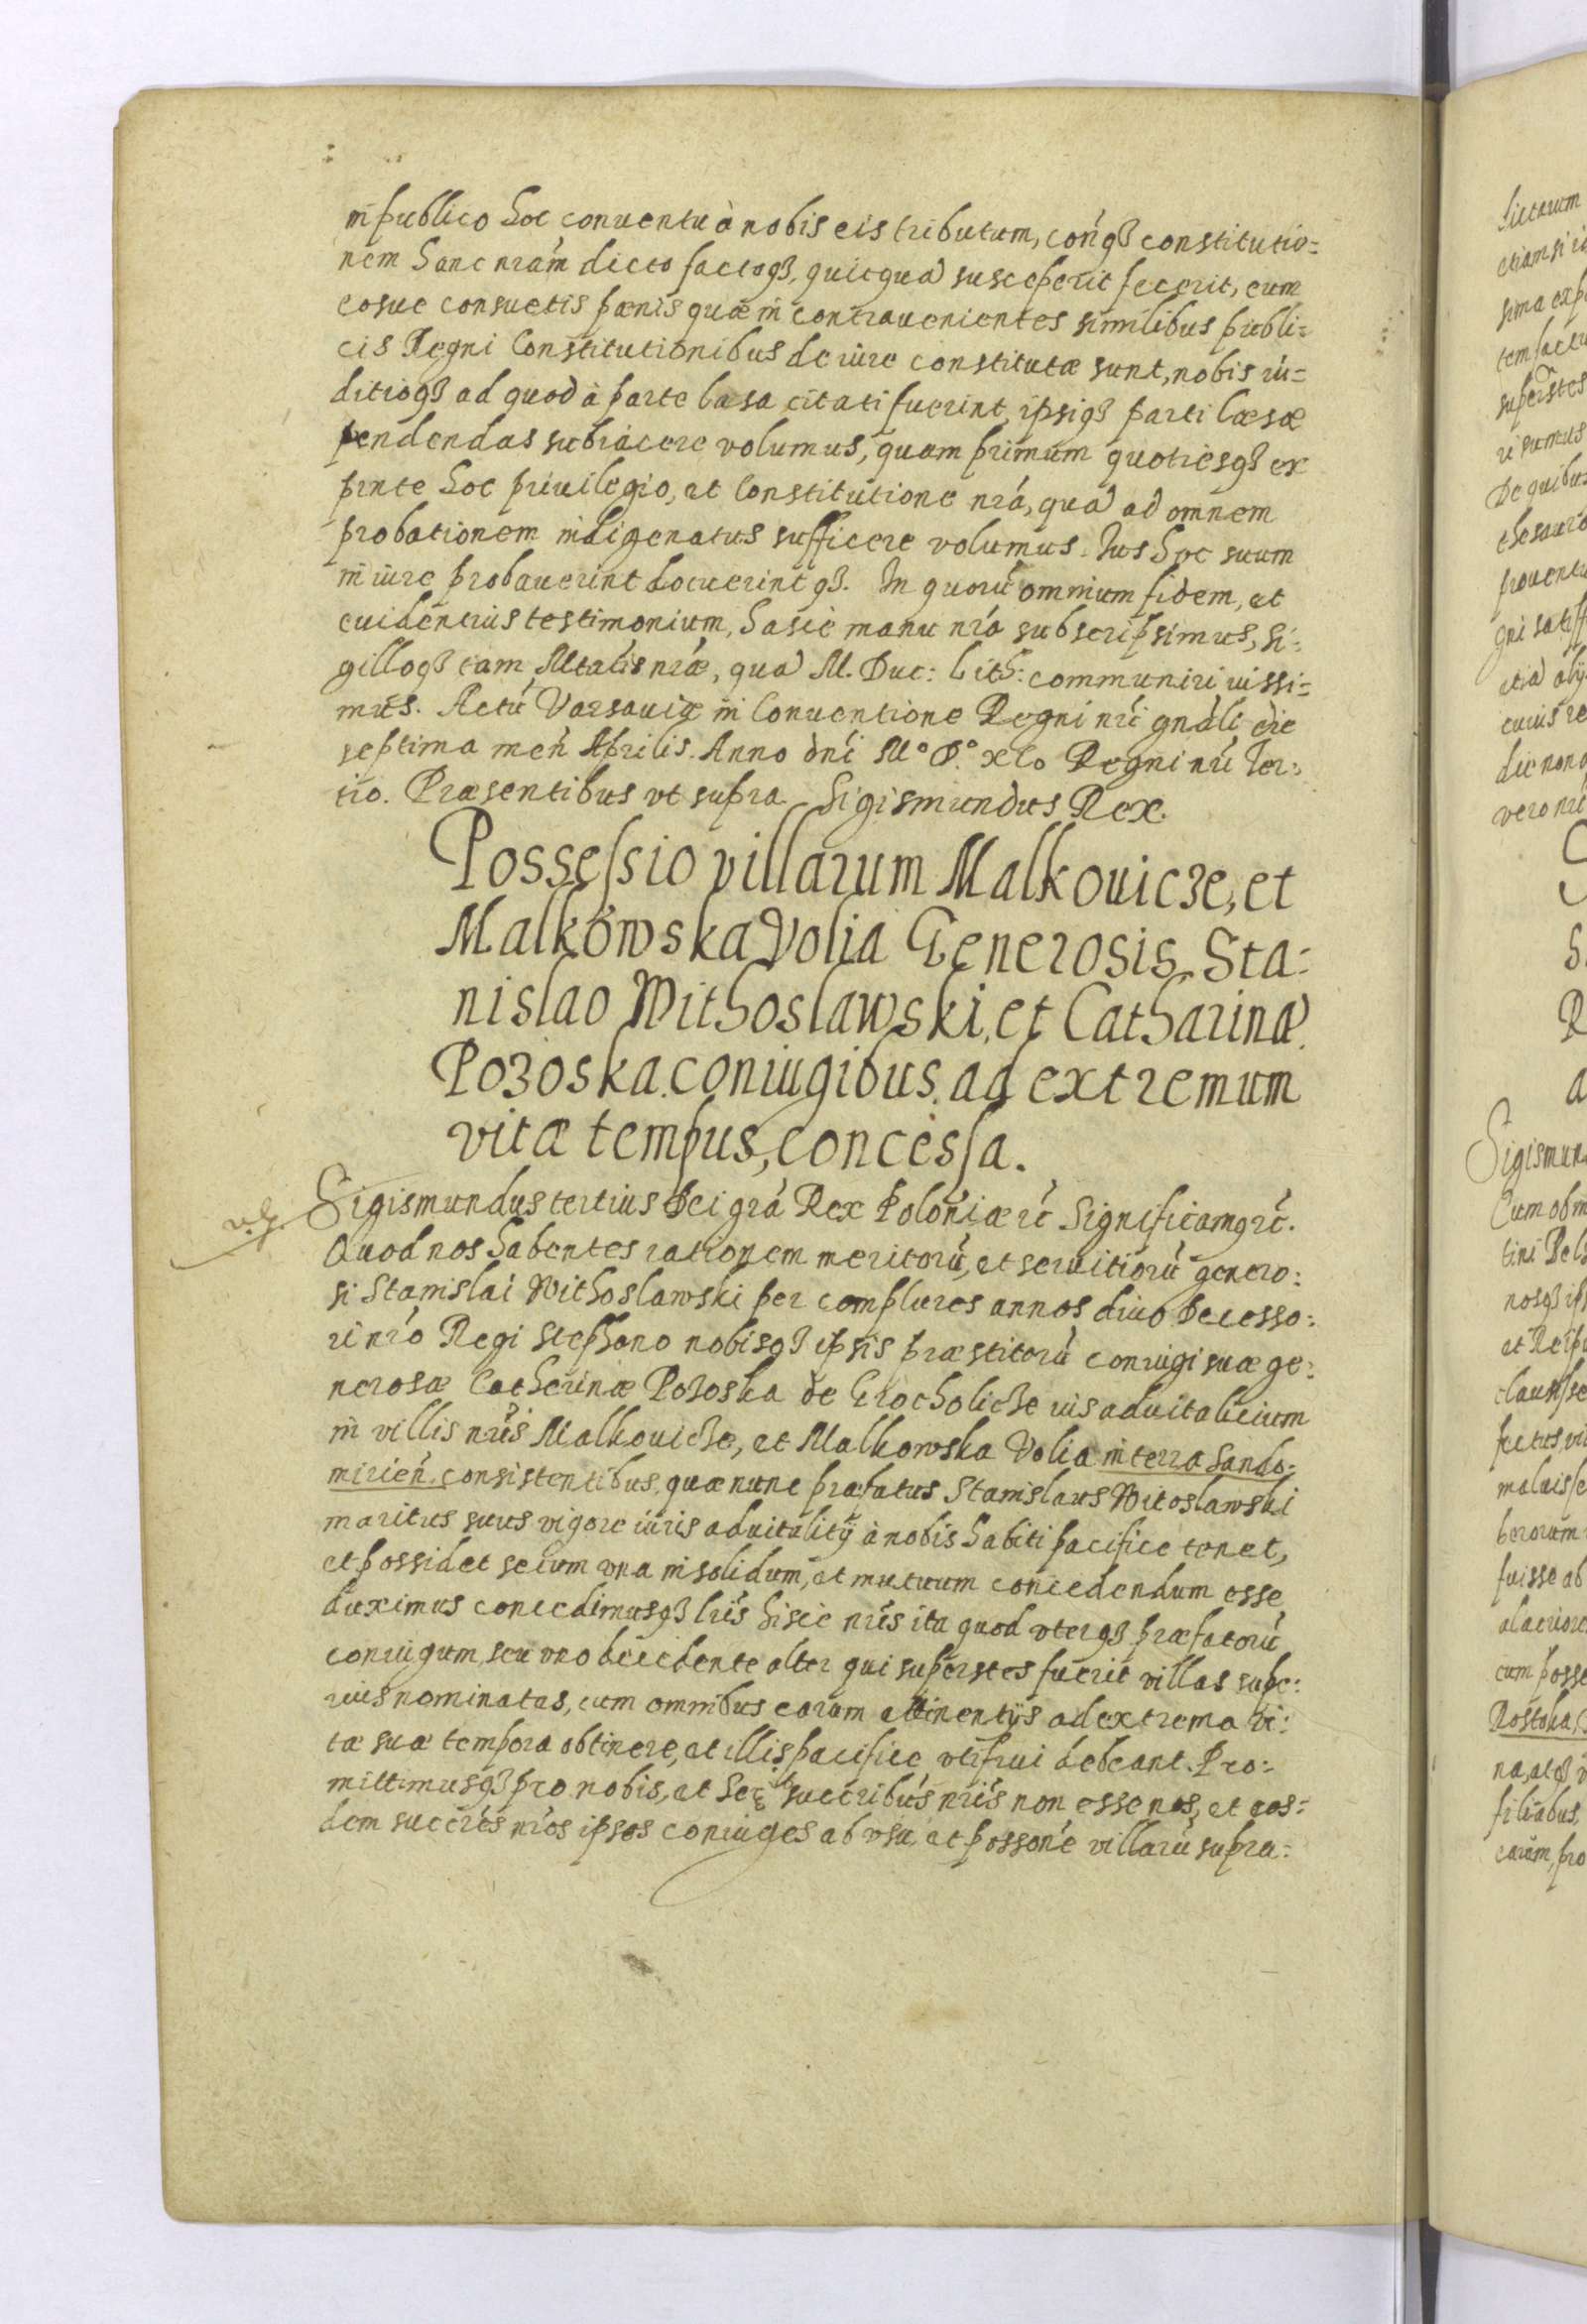 in publico hoc conventu à nobis eis tributum, contrq₃ constitutio=
nem hanc nram dicto factoq₃, quicquā susceperit fecerit, eum
eosue consuetis pœnis quæ in contrauenientes similibus publi=
cis Regni Constitutionibus de iure constitutæ sunt, nobis iu=
ditioq₃ ad quod à parte læsa citati fuerint, ipsiq₃ parti læsæ
pendendas subiacere volumus, quam primum quotiesq₃ ex
pnte hoc priuilegio, et Constitutione nrá, quā ad omnem
probationem indigenatus sufficere volumus. Ius hoc suum
in iure probauerint docuerintq₃. In quorū omnium fidem, et
euidentius testimonium, hasce manu nrá subscripsimus, si=
gilloq₃ tam Mtatis nræ, quā M. Duc: Lith: communiri iussi=
mus. Actū Varsauiæ in Conuentione Regni nri gnāli die
septima men Aprilis. Anno dni M° D.° xCo Regni nri Ter=
tio. Præsentibus vt supra. Sigismundus Rex.
Possessio villarum Malkouicze, et
Malkowska Volia Generosis Sta=
nislao Withoslawski, et Catharinæ
Pozoska coniugibus ad extremum
vitæ tempus, concessa.
Sigismundus tertius Dei grá Rex Poloniæ rć Significamq rć.
Quod nos habentes rationem meritorū, et seruitiorū genero=
si Stanislai Withoslawski per complures annos diuo Decesso=
ri nró Regi Stephano nobisq₃ ipsis præstitorū coniugi suæ ge=
nerosæ Catherinæ Pozoska de Grocholicze ius aduitalicium
in villis nris Malkouicze, et Malkowska Volia in terra Sando=
mirień consistentibus, quæ nunc præfatus Stanislaus Witoslawski
maritus suus vigore iuris aduitalitÿ à nobis habiti pacifice tenet,
et possidet secum vna in solidum, et mutuum concedendum esse
duximus concedimusq₃ lris hisce nris ita quod vterq₃ præfatorū
coniugum, seu vno decedente alter qui superstes fuerit villas supe=
rius nominatas, cum omnibus earum attinentijs ad extrema vi=
tæ suæ tempora obtinere, et illis pacifice vtifrui debeant. Pro=
mittimusq₃ pro nobis, et Ser succribus nris non esse nos, et eos=
dem succrés nros ipsos coniuges ab vsu, et possone villarū supra=